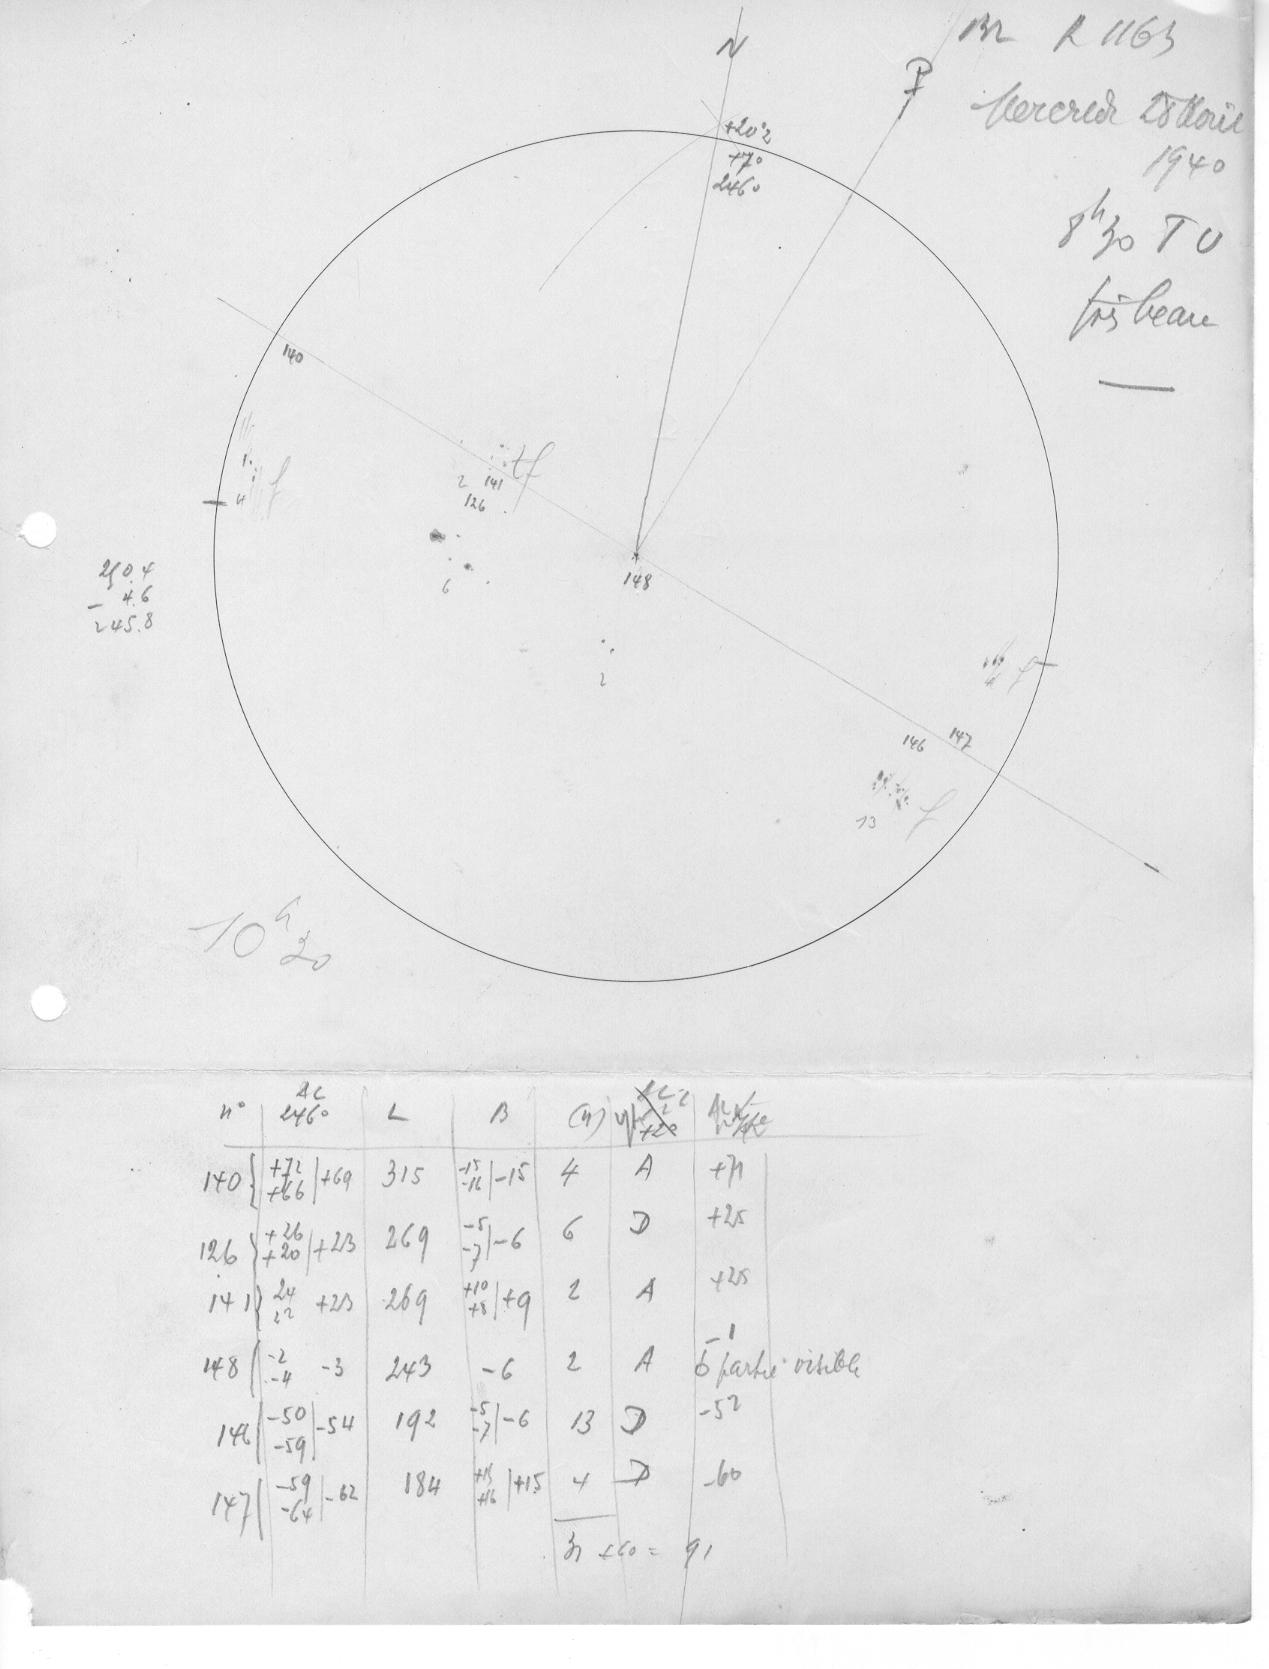 R 1163
Mercredi 28 Aout
1940
8h30 TU
très beau
N
P
+20°2
+7°
246°
140
4
f
2 141 tf
126
6
148
2
250.4
- 4.6
245.8
f
146 147
13 f
10h20
n° | AC 246° | L | B | (n)
140 { +72 +66 | +69 | 315 | -15 -16 | -15 | 4 | A | +71
126 { +26 +20 | +23 | 269 | -5 -7 | -6 | 6 | D | +25
141 } 24 22 +23 | 269 | +10 +8 | +9 | 2 | A | +25
148 ( -2 -4 -3 | 243 | -6 | 2 | A | -1
partie visible
146 ( -50 -59 | -54 | 192 | -5 -7 | -6 | 13 | D | -52
147 ( -59 -64 | -62 | 184 | +15 +16 | +15 | 4 | D | -60
31 +60 = 91